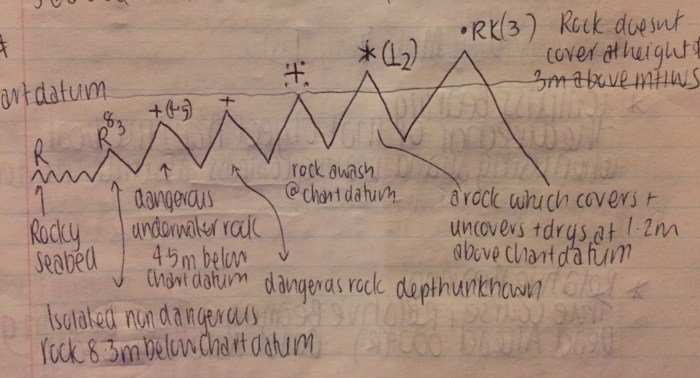 •RK(3) Rock doesnt
cover at height of
3m above mhws
*(1₂)
chart datum
+(4₅)
+
R
R 8₃
Rocky
seabed
dangerous
underwater rock
45m below
chart datum
rock awash
@chart datum
a rock which covers +
uncovers + drys at 1.2m
above chart datum
dangeras rock depth unknown
Isolated non dangerous
rock 8.3m below chart datum